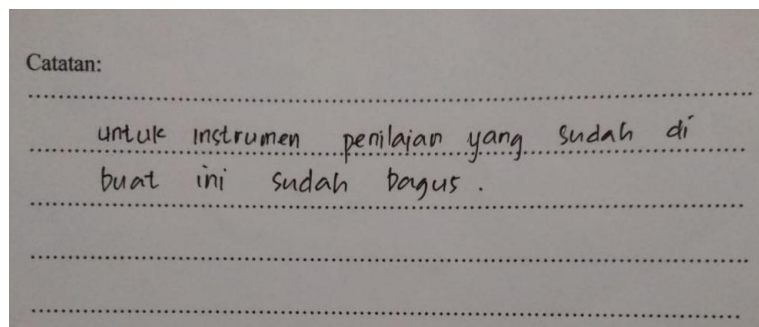 Catatan:
untuk instrumen penilaian yang sudah di
buat ini sudah bagus.